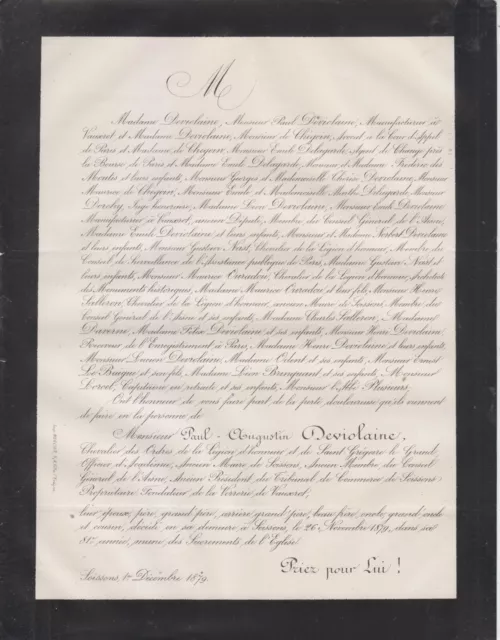 M
Madame Deviolaine, Monsieur Paul Deviolaine, Manufacturier à
Vauxrot et Madame Deviolaine, Monsieur de Chegoin, Avocat à la Cour d'Appel
de Paris et Madame de Chegoin, Monsieur Emile Delagarde, Agent de Change près
la Bourse de Paris et Madame Emile Delagarde, Monsieur et Madame Frédéric des
et leurs enfants, Monsieur Georges et Mademoiselle Deviolaine, Monsieur
Maurice de Chegoin, Monsieur Emile et Mademoiselle Marthe Delagarde, Monsieur
Juge Honoraire, Madame Louise Deviolaine, Monsieur Emile Deviolaine
Manufacturier à Vauxrot, ancien Député, Membre du Conseil Général de l'Aisne,
Madame Emile Deviolaine et leurs enfants, Monsieur et Madame Deviolaine
et leurs enfants, Monsieur Gustave Chevalier de la Légion d'honneur, Membre du
Conseil de Surveillance de l'Assistance publique de Paris, Madame Gustave et
leurs enfants, Monsieur Maurice Ouradou, Chevalier de la Légion d'honneur, Architecte
des Monuments historiques, Madame Maurice Ouradou et leur fils, Monsieur Henri
Salleron, Chevalier de la Légion d'honneur, ancien Maire de Soissons, Membre du
Conseil Général de l'Aisne et ses enfants, Madame Charles Salleron, Madame
Madame Félix Deviolaine et ses enfants, Monsieur Henri Deviolaine,
Receveur de l'Enregistrement à Paris, Madame Henri Deviolaine et leurs enfants,
Monsieur Lucien Deviolaine, Madame et ses enfants, Monsieur Ernest
Le et ses fils, Madame Léon et ses enfants, Monsieur
Capitaine en retraite et ses enfants, Monsieur l'Abbé
Ont l'honneur de vous faire part de la perte douloureuse qu'ils viennent
de faire en la personne de
Monsieur Paul-Augustin Deviolaine,
Chevalier des Ordres de la Légion d'honneur et de Saint Grégoire le Grand,
Officier d'Académie, Ancien Maire de Soissons, Ancien Membre du Conseil
Général de l'Aisne, Ancien Président du Tribunal de Commerce de Soissons
Propriétaire Fondateur de la Verrerie de Vauxrot,
leur époux, père, grand père, arrière grand père, beau père, oncle, grand oncle
et cousin, décédé en sa demeure à Soissons, le 26 Novembre 1879, dans sa
81e année, muni des Sacrements de l'Eglise
Priez pour Lui !
Soissons, 1er Décembre 1879.